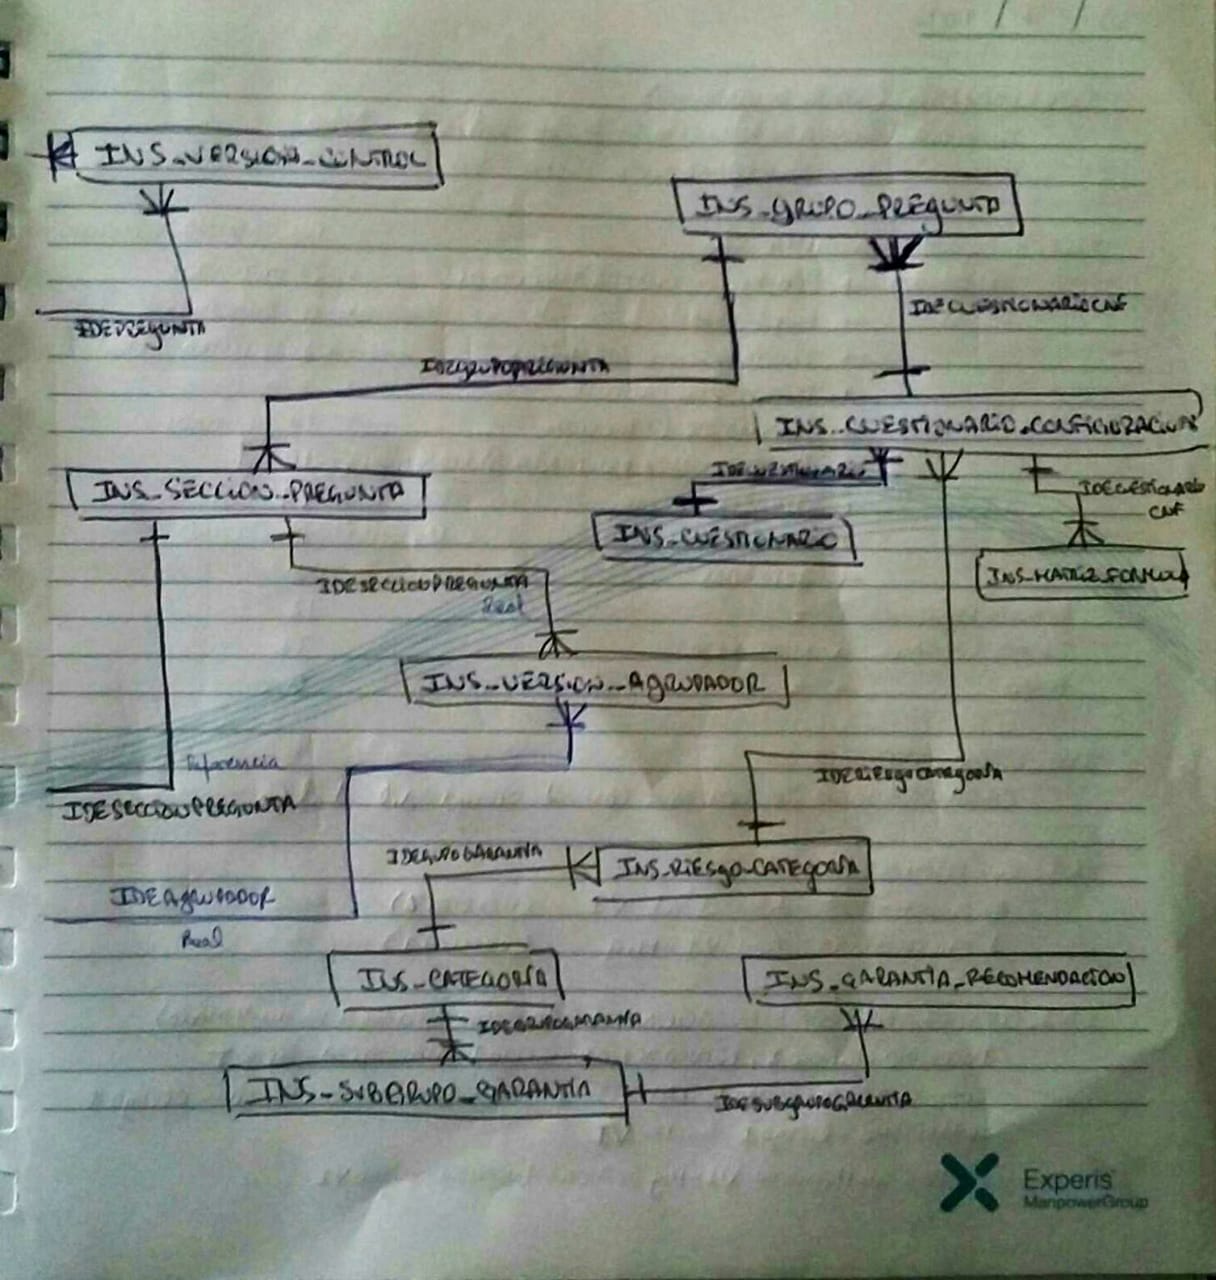 INS_VERSION_CONTROL
INS_GRUPO_PREGUNTA
IDECUESTIONARIOCNF
IDEPREGUNTA
IDEGRUPOPREGUNTA
INS_CUESTIONARIO_CONFIGURACION
IDECUESTIONARIO
INS_SECCION_PREGUNTA
IDECUESTIONARIO
CNF
INS_CUESTIONARIO
INS_MATRIZ_FORMULA
IDESECCIONPREGUNTA
Real
INS_VERSION_AGRUPADOR
Referencia
IDERIESGOCATEGORIA
IDESECCIONPREGUNTA
IDEGRUPOGARANTIA
INS_RIESGO_CATEGORIA
IDEAGRUPADOR
Real
INS_CATEGORIA
INS_GARANTIA_RECOMENDACION
IDEGRUPOGARANTIA
INS_SUBGRUPO_GARANTIA
IDESUBGRUPOGARANTIA
Experis
ManpowerGroup